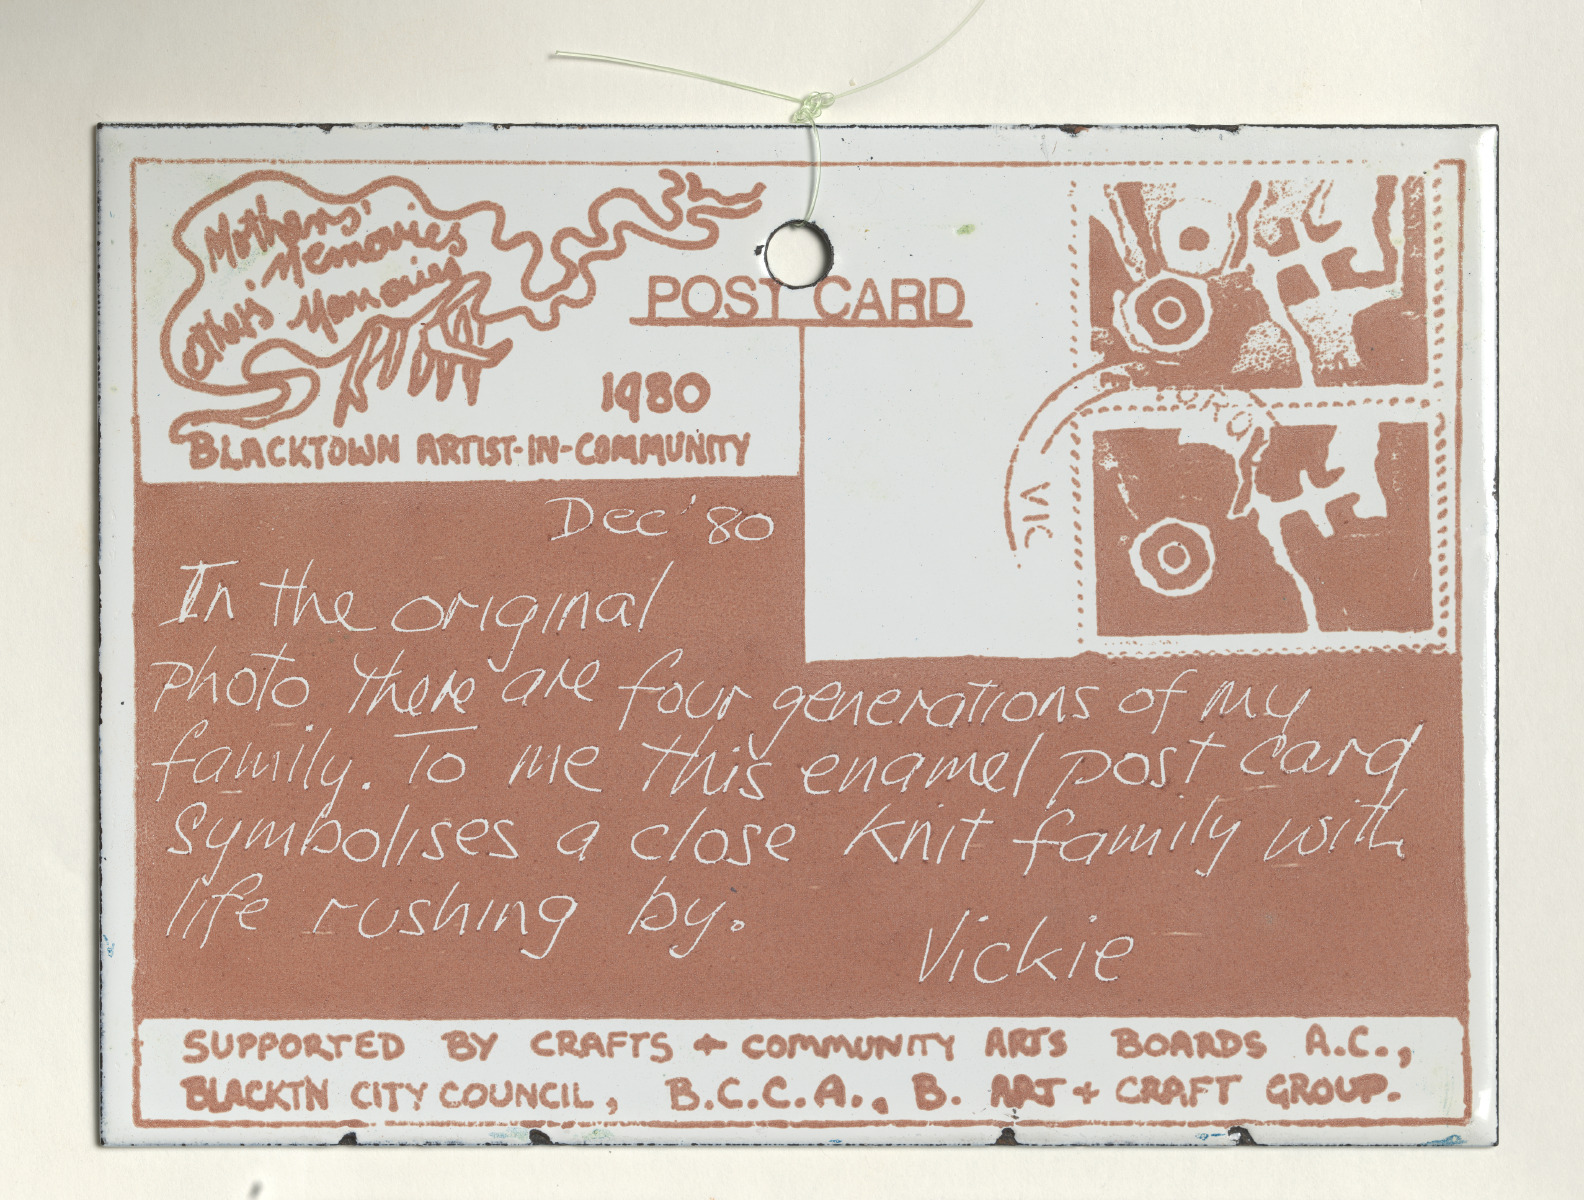 Mothers'
Memories
Others' Memories
POST CARD
1980
BLACKTOWN ARTIST-IN-COMMUNITY
VIC
Dec '80
In the original
photo there are four generations of my
family. To me this enamel post card
Symbolises a close knit family with
life rushing by.
Vickie
SUPPORTED BY CRAFTS + COMMUNITY ARTS BOARDS A.C.,
BLACKTN CITY COUNCIL, B.C.C.A., B. ART + CRAFT GROUP.